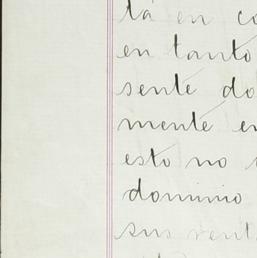 tá en co
en tanto
sente do
mente en
esto no
dominio
sus vent